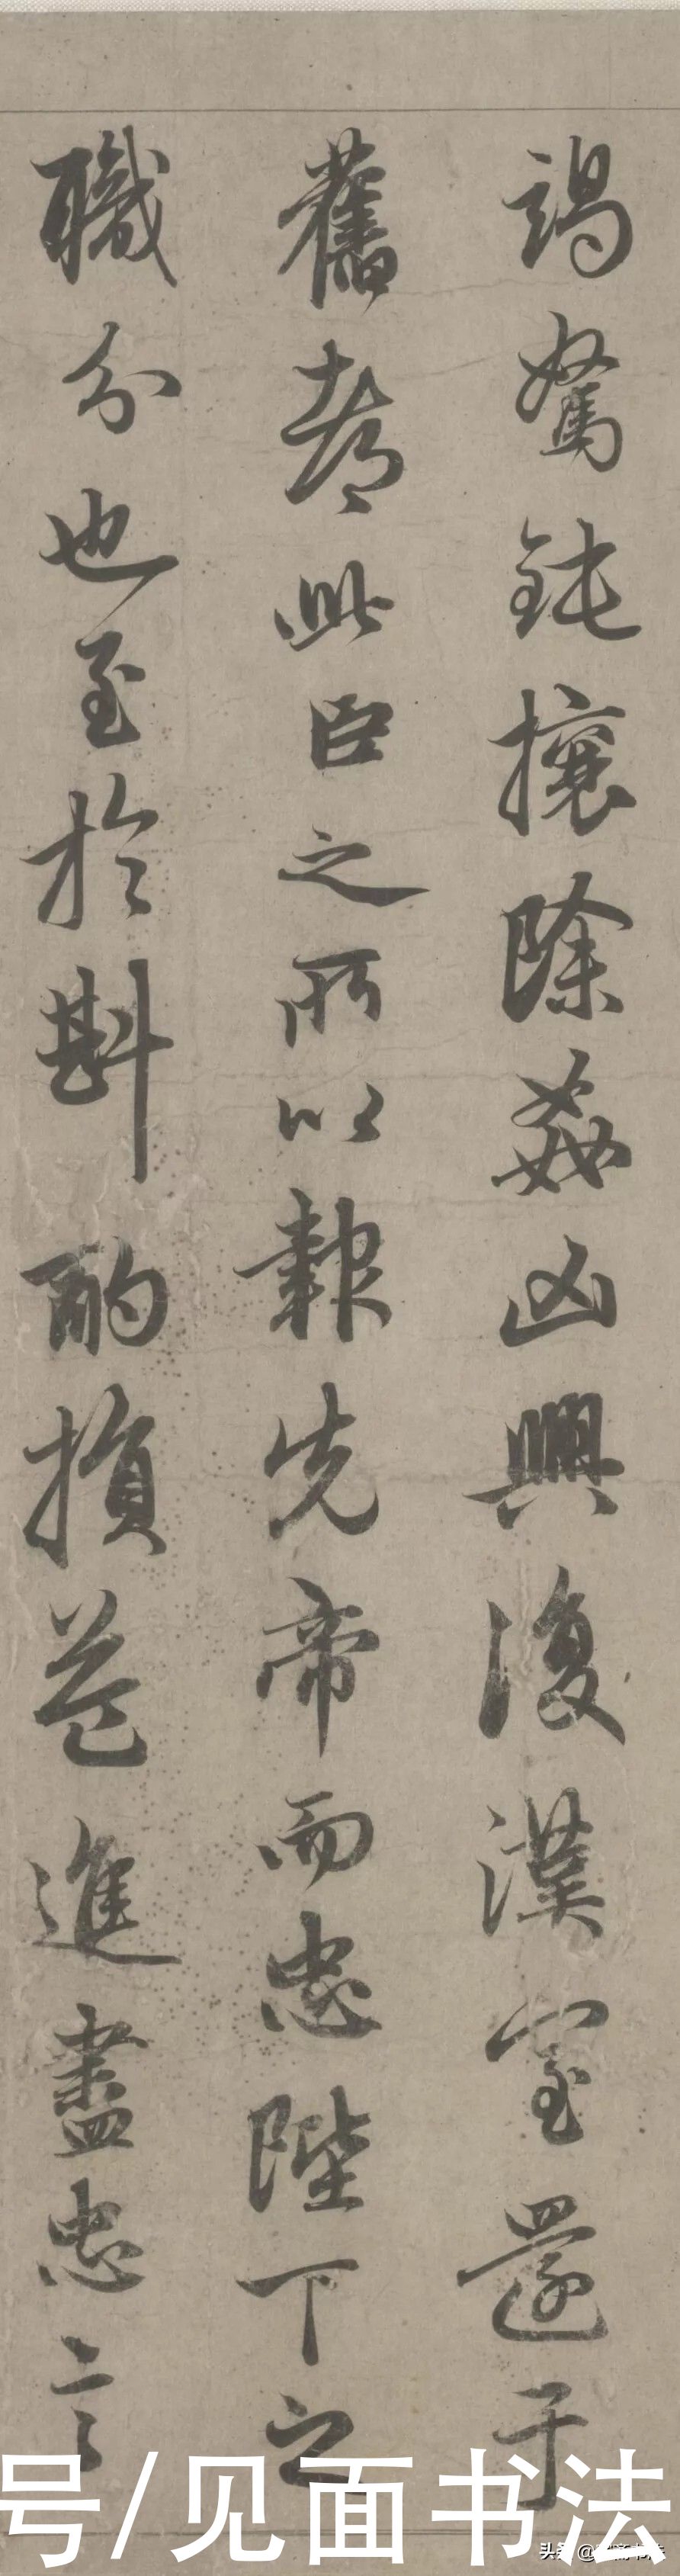 竭駑鈍攘除姦凶興復漢室還于
舊都此臣之所以報先帝而忠陛下之
職分也至於斟酌損益進盡忠言
号/见面书法